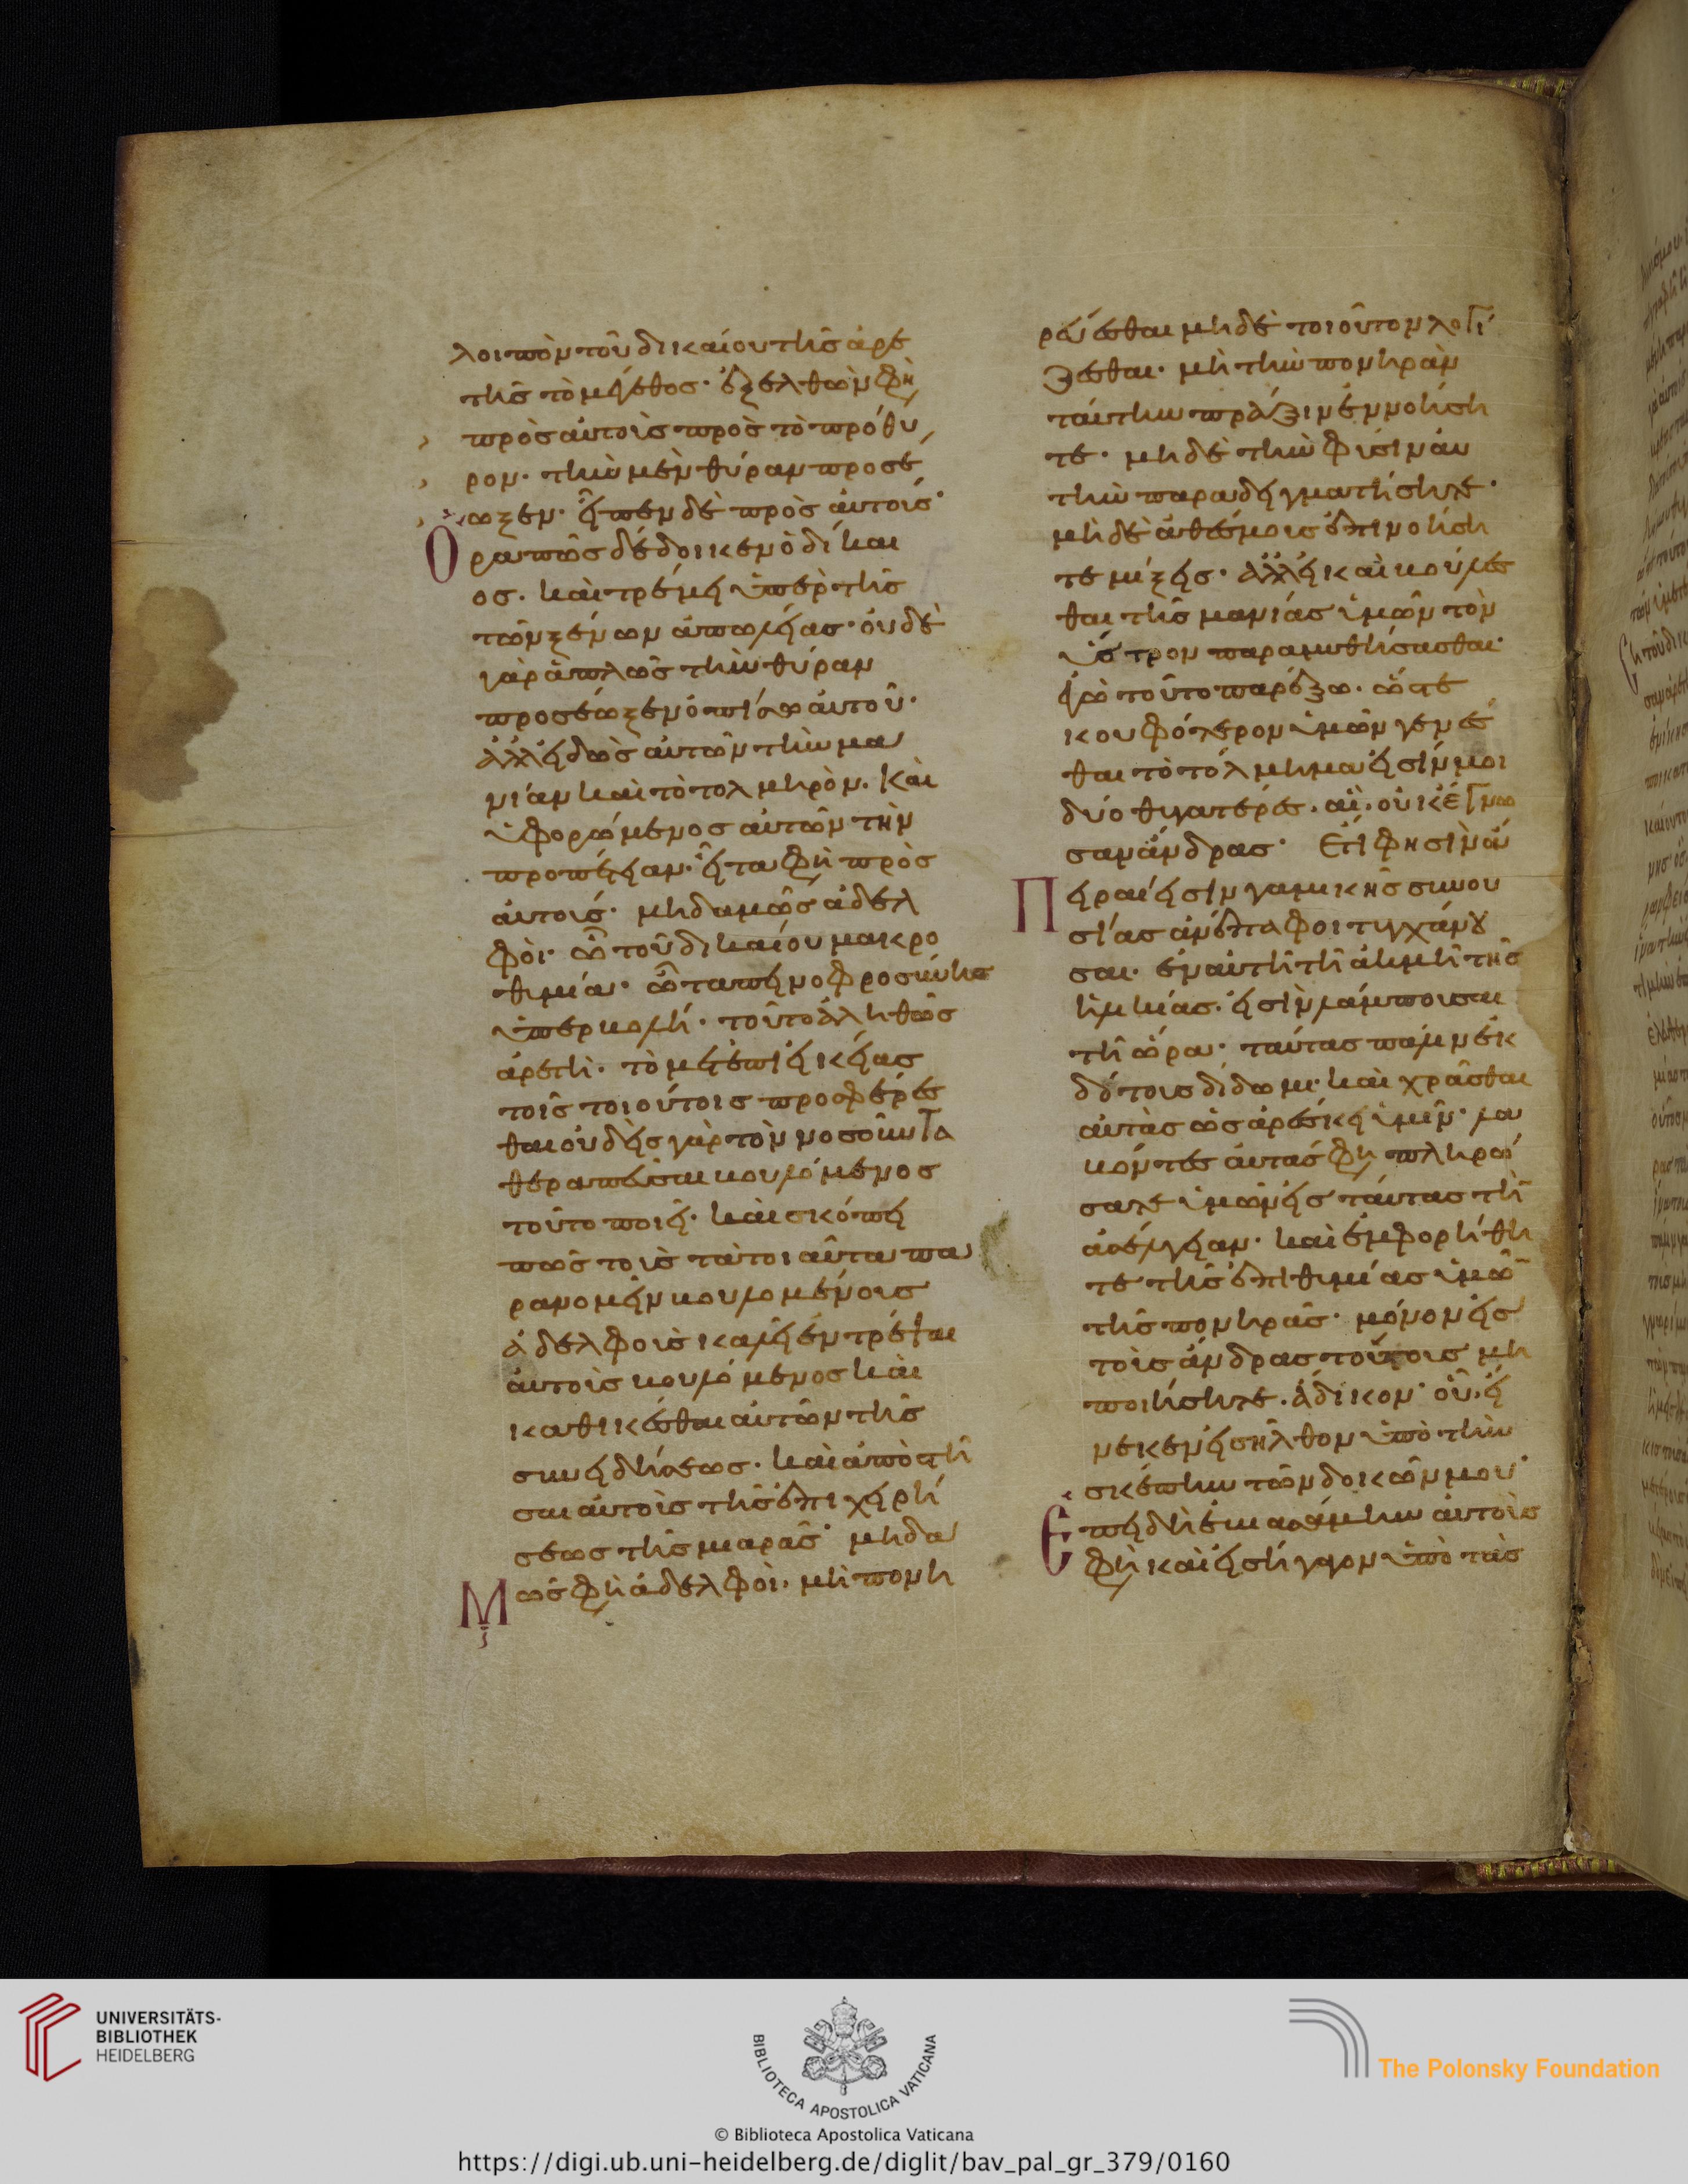 λοιπὸν τοῦ δικαίου τῆς ἀρε
τῆς τὸ μέγεθος· ἐξελθὼν φη
πρὸς αὐτοὺς πρὸς τὸ πρόθυ
ρον· τὴν μὲν θύραν προσέ
ωξεν· εἶπεν δὲ πρὸς αὐτούς·
Ὅρα πῶς δέδοικεν ὁ δίκαι
ος. καὶ τρέμει ὑπὲρ τῆς
τῶν ξένων ἀπωλείας· οὐδὲ
γὰρ ἁπλῶς τὴν θύραν
προσέωξεν ὀπίσω αὐτοῦ·
ἀλλ' εἰδὼς αὐτῶν τὴν μα
νίαν καὶ τὸ τολμηρόν. καὶ
ὑφορώμενος αὐτῶν τὴν
προπέτειαν· εἶτα φη πρὸς
αὐτούς· μηδαμῶς ἀδελ
φοί· ὢ τοῦ δικαίου μακρο
θυμία· ὢ ταπεινοφροσύνης
ὑπερβολή· τοῦτο ἀληθῶς
ἀρετή· τὸ μετ' ἐπιεικείας
τοῖς τοιούτοις προσφέρεσ
θαι οὐδεὶς γὰρ τὸν νοσοῦντα
θεραπεῦσαι βουλόμενος
τοῦτο ποιεῖ· καὶ σκόπει
πῶς τοὺς τὰ τοιαῦτα πα
ρανομεῖν βουλομένους
ἀδελφοὺς καλεῖ ἐντρέψαι
αὐτοὺς βουλόμενος καὶ
καθικέσθαι αὐτῶν τῆς
συνειδήσεως· καὶ ἀποστῆ
σαι αὐτοὺς τῆς ἐπιχειρή
σεως τῆς μιαρᾶς· μηδα
Μῶς φη ἀδελφοί· μὴ πονη
ρεύεσθαι μηδὲ τοιοῦτον λογί
ζεσθαι· μὴ τὴν πονηρὰν
ταύτην πρᾶξιν ἐννοήση
τε· μηδὲ τὴν φύσιν αὐ
τὴν παραδειγματίσητε·
μὴ δὲ ἀθέσμους ἐπινοήση
τε μίξεις· ἀλλ' εἰ καὶ βούλεσ
θαι τῆς μανίας ὑμῶν τὸν
οἶστρον παραμυθήσασθαι·
ἐγὼ τοῦτο παρέξω. ὥστε
κουφότερον ὑμῶν γενέσ
θαι τὸ τόλμημα εἰσίν μοι
δύο θυγατέρες. αἳ οὐκ ἔγνω
σαν ἄνδρας· Ἔτι φησὶν ἄ
Πειραί εἰσιν γαμικῆς συνου
σίας ἀνέπαφοι τυγχάνου
σαι· ἐν αὐτῇ τῇ ἀκμῇ τῆς
ἡλικίας. εἰσὶν λάμπουσαι
τῇ ὥρα· ταύτας
δότους δίδωμι· καὶ χρᾶσθαι
αὐτὰς ὡς ἀρέσκει ὑμῖν· λα
βόντες αὐτάς φη πληρώ
σατε ὑμῶν εἰς ταύτας τὴν
ἀσέλγειαν· καὶ ἐμφορήθη
τε τῆς ἐπιθυμίας ὑμῶν
τῆς πονηρᾶς· μόνον εἰς
τοὺς ἄνδρας τούτους μὴ
ποιήσητε. ἄδικον· οὗ εἵ
νεκεν εἰσῆλθον ὑπὸ τὴν
σκέπην τῶν δοκῶν μου·
Ἐπειδὴ ἐβιασάμην αὐτούς
φη καὶ εἰσήγαγον ὑπὸ τὰς
UNIVERSITÄTS-
BIBLIOTHEK
HEIDELBERG
BIBLIOTECA APOSTOLICA VATICANA
The Polonsky Foundation
© Biblioteca Apostolica Vaticana
https://digi.ub.uni-heidelberg.de/diglit/bav_pal_gr_379/0160